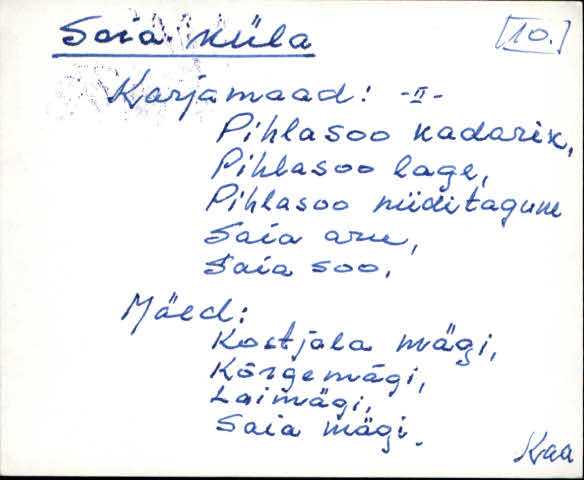 Saia küla [10.]
Karjamaad: -II-
Pihlasoo kadarik,
Pihlasoo lage,
Pihlasoo niiditagune
Saia aru,
Saia soo,
Mäed:
Kostjala mägi,
Kõrgemägi,
Laimägi,
Saia mägi.
Kaa